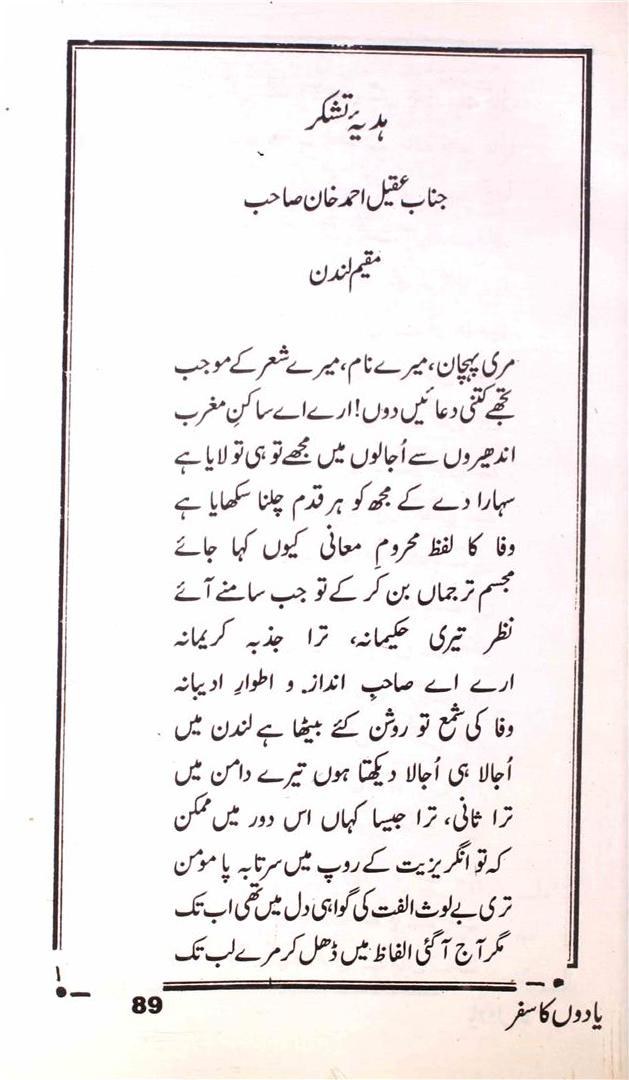 ہدیۂ تشکر
جناب عقیل احمد خان صاحب
مقیم لندن
مری پہچان، میرے نام، میرے شعر کے موجب
تجھے کتنی دعائیں دوں! ارے اے ساکنِ مغرب
اندھیروں سے اُجالوں میں مجھے تو ہی تو لایا ہے
سہارا دے کے مجھ کو ہر قدم چلنا سکھایا ہے
وفا کا لفظ محرومِ معانی کیوں کہا جائے
مجسم ترجماں بن کر کے تو جب سامنے آئے
نظر تیری حکیمانہ، ترا جذبہ کریمانہ
ارے اے صاحبِ انداز و اطوارِ ادیبانہ
وفا کی شمع تو روشن کئے بیٹھا ہے لندن میں
اُجالا ہی اُجالا دیکھتا ہوں تیرے دامن میں
ترا ثانی، ترا جیسا کہاں اس دور میں ممکن
کہ تو انگریزیت کے روپ میں سرتابہ پا مومن
تری بے لوث الفت کی گواہی دل میں تھی اب تک
مگر آج آ گئی الفاظ میں ڈھل کر مرے لب تک
یادوں کا سفر
89